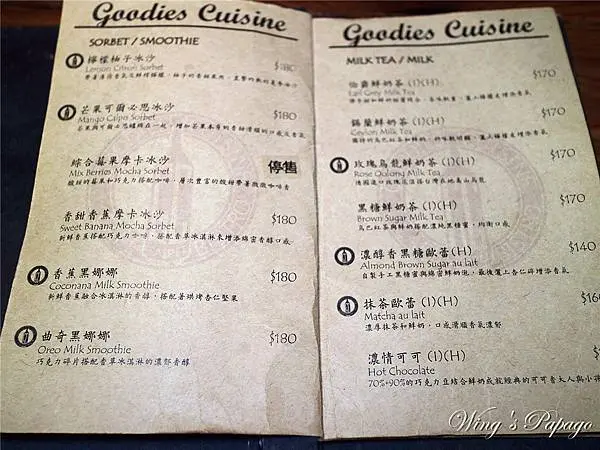 Goodies Cuisine
SORBET / SMOOTHIE
檸檬柚子冰沙 $180
Lemon Citron Sorbet
芒果可爾必思冰沙 $180
Mango Calpis Sorbet
芒果與可爾必思
綜合莓果摩卡冰沙 停售
Mix Berries Mocha Sorbet
酸甜的莓果和巧克力搭配咖啡，層次豐富的酸甜帶著微微咖啡香
香甜香蕉摩卡冰沙 $180
Sweet Banana Mocha Sorbet
新鮮香蕉搭配巧克力咖啡，搭配香草冰淇淋來增添綿密香醇口感
香蕉黑娜娜 $180
Coconana Milk Smoothie
新鮮香蕉融合冰淇淋的香醇，搭配著烘烤杏仁堅果
曲奇黑娜娜 $180
Oreo Milk Smoothie
巧克力碎片搭配香草冰淇淋的濃郁香醇
Goodies Cuisine
MILK TEA / MILK
伯爵鮮奶茶 (I)(H) $170
Earl Grey Milk Tea
錫蘭鮮奶茶 (I)(H) $170
Ceylon Milk Tea
玫瑰烏龍鮮奶茶 (I)(H) $170
Rose Oolong Milk Tea
黑糖鮮奶茶 (I)(H) $170
Brown Sugar Milk Tea
烏巴紅茶與鮮奶搭配濃純黑糖蜜，均衡口感
濃醇香黑糖歐蕾(H) $140
Almond Brown Sugar au lait
自製手工黑糖蜜與綿密鮮奶泡，最後灑上杏仁碎增添香氣
抹茶歐蕾 (I)(H)
Matcha au lait
濃厚抹茶和鮮奶，口感滑順香氣濃郁
濃情可可 (I)(H)
Hot Chocolate
70%+90%的巧克力豆結合鮮奶成就經典的可可香大人與小孩
Wing's Papago